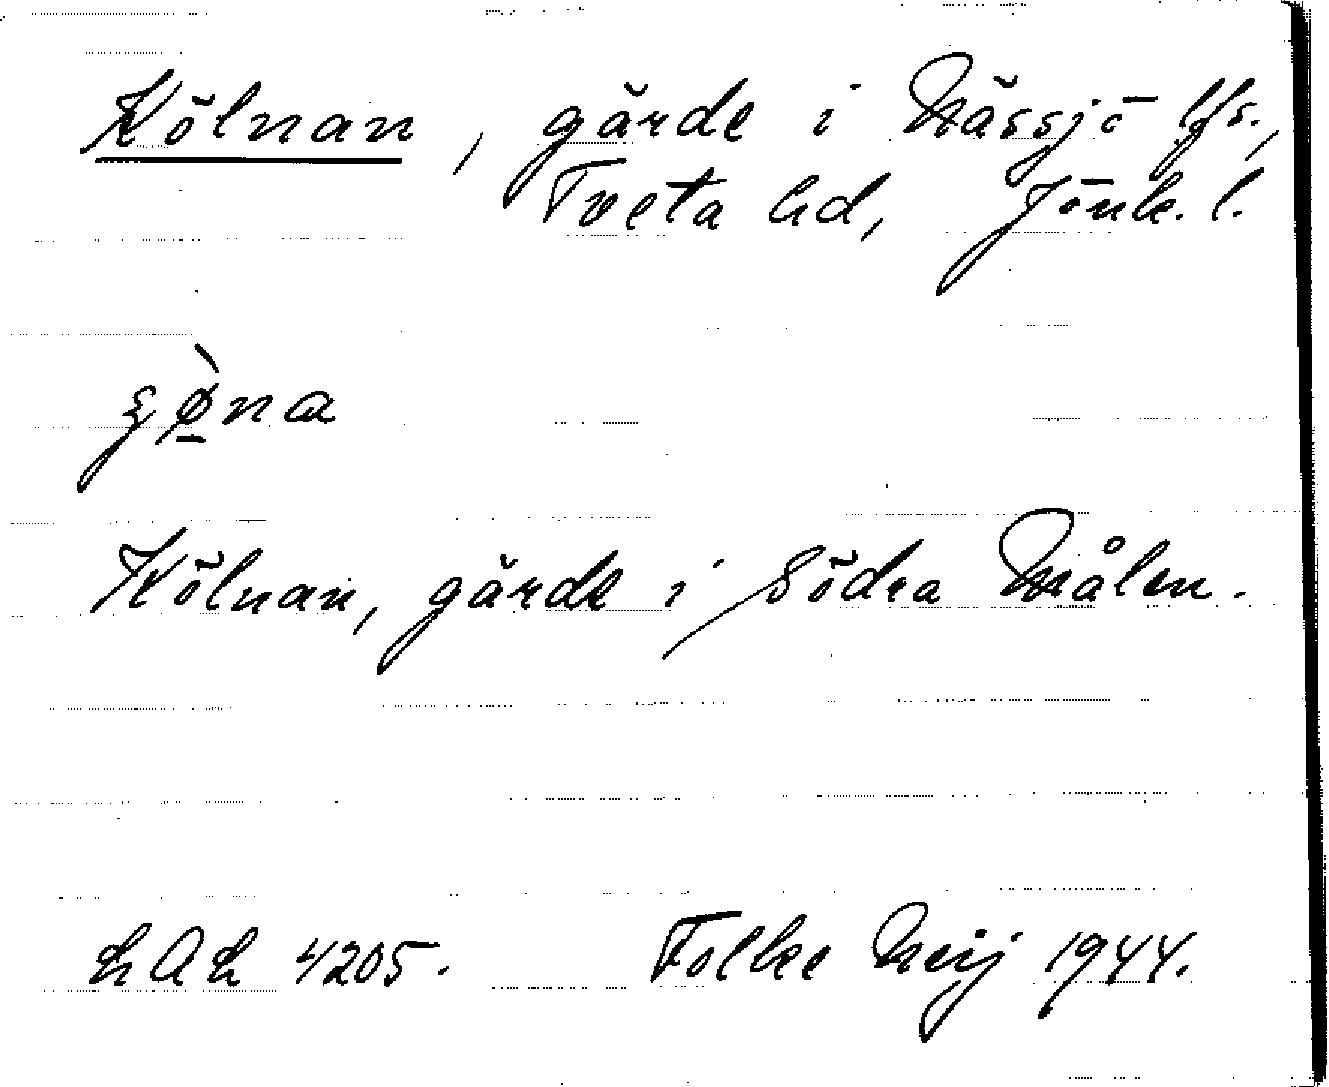 Kölnan, gärde i Nässjö lfs.,
Tveta hd, Jönk. l.
Kölnan, gärde i Södra Målen.
LAL 4205. Folke Neij 1944.